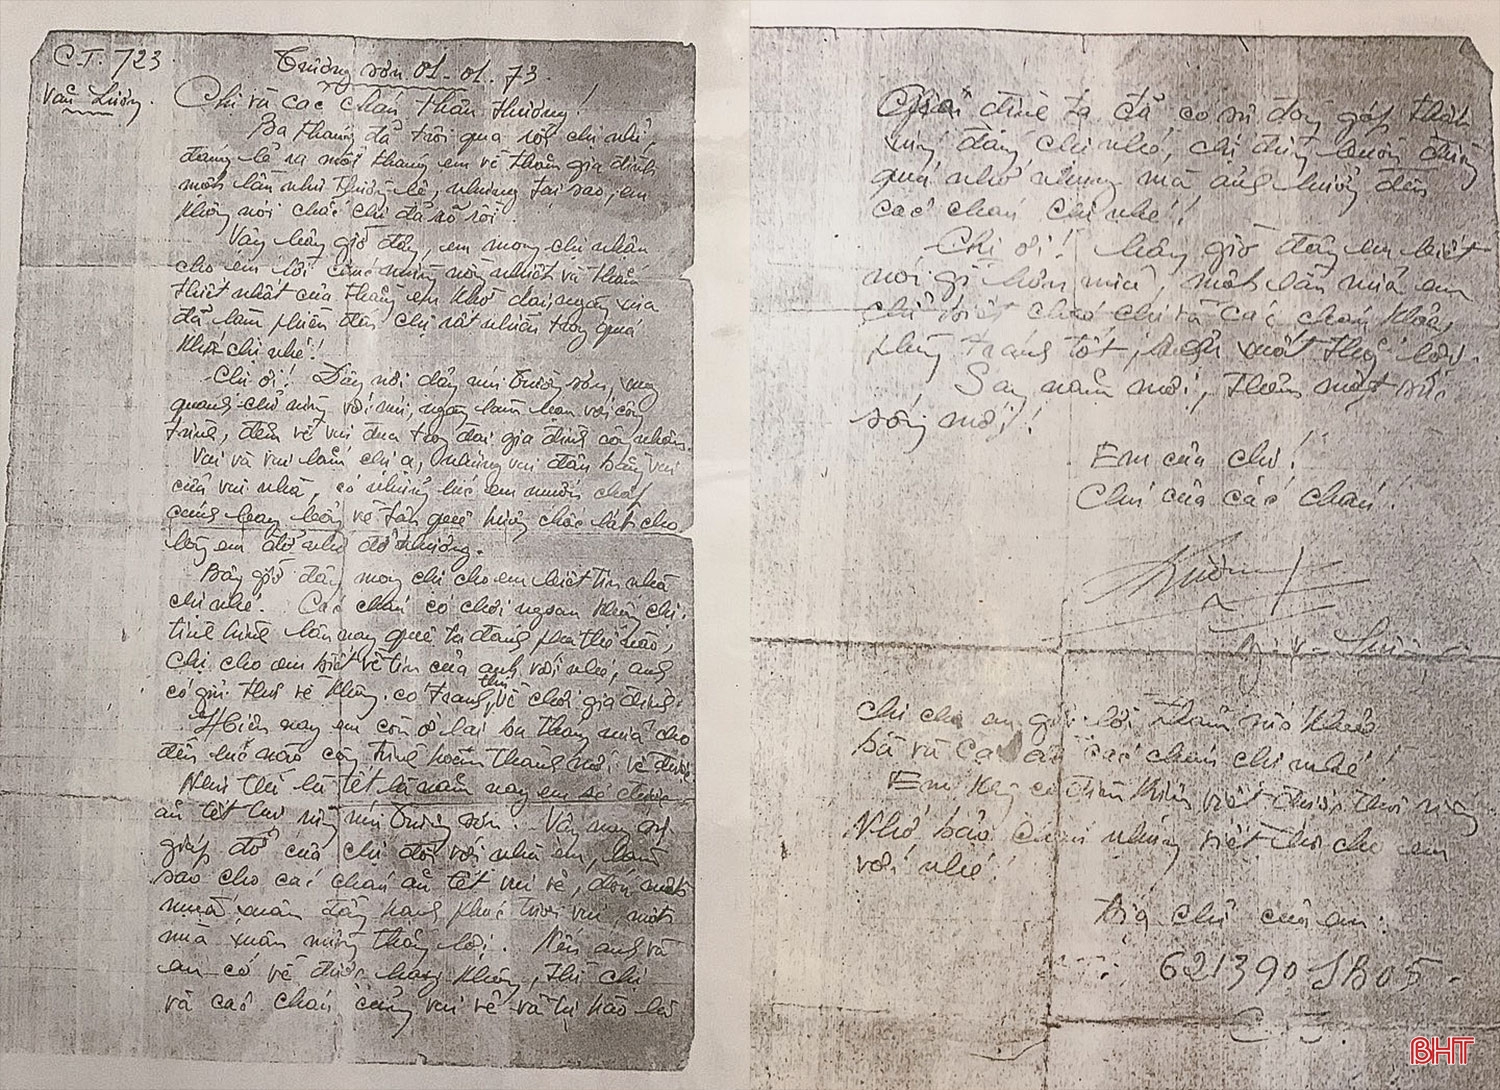 C.T. 723.
Trường sơn 01-01-73.
Văn Lương.
Chị và các cháu thân thương!
Ba tháng đã trôi qua rồi chị nhỉ,
đáng lẽ ra mỗi tháng em về thăm gia đình
một lần như thường lệ, nhưng tại sao, em
không nói chắc chị đã rõ rồi.
Vậy bây giờ đây, em mong chị nhận
cho em lời chúc mừng nồng nhiệt và thắm
thiết nhất của thằng em khờ dại ngày xưa
đã làm phiền đến chị rất nhiều trong quá
khứ chị nhé!
Chị ơi! Đây nơi đây núi Trường sơn,
quanh chỉ rừng với núi, ngày làm bạn với công
trình, đêm về vui đùa trong đại gia đình công nhân.
Vui và vui lắm chị ạ, nhưng vui đâu bằng vui
của vui nhà, có những lúc em muốn chắp
cánh bay bổng về tận quê hương chốc lát cho
lòng em đỡ nhớ đỡ thương.
Bây giờ đây mong chị cho em biết tin nhà
chị nhé. Các cháu có chơi ngoan không chị.
tình hình lâu nay quê ta đánh phá thế nào,
chị cho em biết về tin của anh với nhé, anh
có gửi thư về không. có tranh thủ về chơi gia đình.
Hiện nay em còn ở lại ba tháng nữa cho
đến lúc nào công trình hoàn thành mới về được
Như thế là tết là năm nay em sẽ được
ăn tết tại rừng núi Trường sơn. Vậy nay sự
giúp đỡ của chị đối với nhà em, làm
sao cho các cháu ăn tết vui vẻ, đón một
mùa xuân đầy hạnh phúc tươi vui, một
mùa xuân mừng thắng lợi. Nếu anh và
em có về được hay không, thì chị
và các cháu cũng vui vẻ và tự hào là
Gia đình ta đã có sự đóng góp thích
xứng đáng chị nhé, chị đừng buồn đừng
quá nhớ nhung mà ảnh hưởng đến
các cháu chị nhé!
Chị ơi! bây giờ đây em biết
nói gì hơn nữa, một lần nữa em
chỉ biết chúc chị và các cháu khỏe,
tráng tốt, một thắng lợi.
Sang năm mới, thêm một sức
sống mới!
Em của chị!
Chú của các cháu!
chị cho em gửi lời thăm sức khỏe
bà và các cháu chị nhé!
Em không có điều kiện viết được thư riêng
Nhớ bảo nhưng viết thư cho em
với nhé!
Địa chỉ của em:
621390 JB05.
BHT